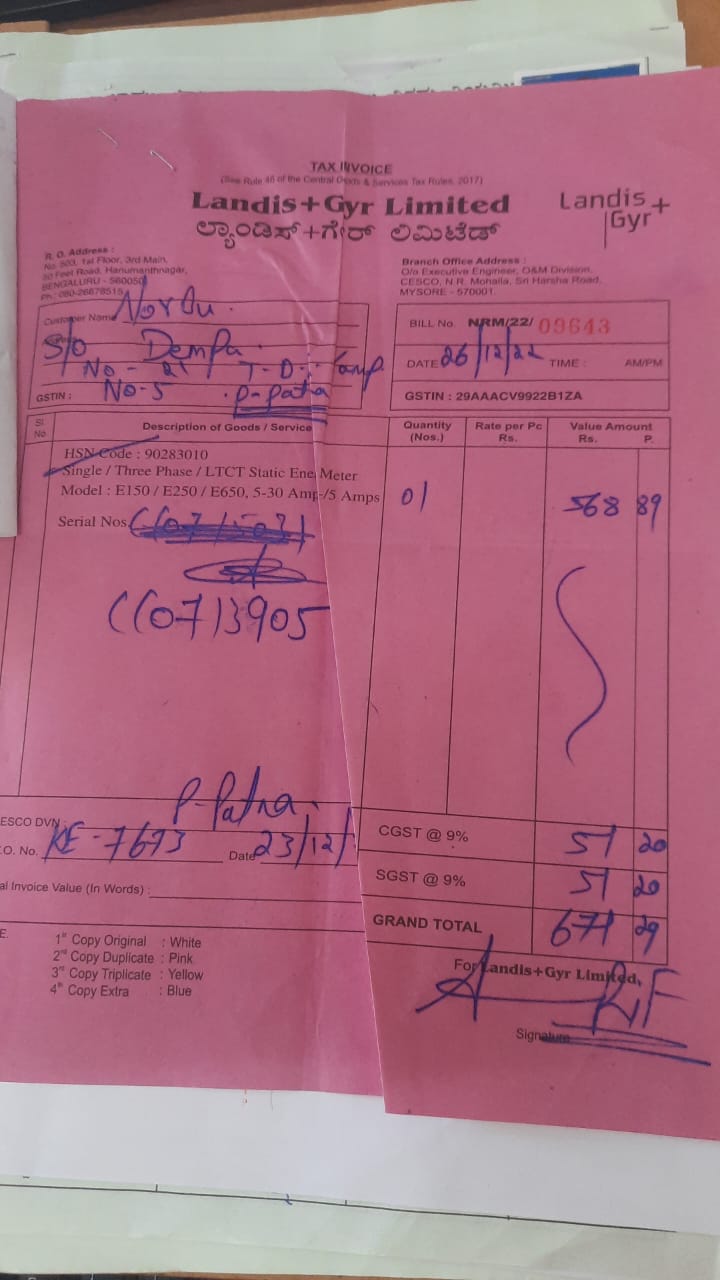 TAX INVOICE
(See Rule 46 of the Central Goods & Services Tax Rules, 2017)
Landis+Gyr Limited
ಲ್ಯಾಂಡಿಸ್+ಗೇರ್ ಲಿಮಿಟೆಡ್
Landis+
Gyr
R. O. Address :
No. 503, 1st Floor, 3rd Main,
50 Feet Road, Hanumanthnagar,
BENGALURU - 560050
Ph : 080-26678515
Branch Office Address :
O/o Executive Engineer, O&M Division,
CESCO, N.R. Mohalla, Sri Harsha Road,
MYSORE - 570001.
Customer Name Norbu.
S/o Dempa
No - 21 T-D-
GSTIN : No-5 P-Patna
BILL No. NRM/22/ 09643
DATE 26/12/22 TIME : AM/PM
GSTIN : 29AAACV9922B1ZA
Sl. No. Description of Goods / Service Quantity (Nos.) Rate per Pc Rs. Value Amount Rs. P.
HSN Code : 90283010
Single / Three Phase / LTCT Static Ene Meter
Model : E150 / E250 / E650, 5-30 Amp-/5 Amps 01 568 89
Serial Nos.
((0713905
P-Patna.
ESCO DVN :
.O. No. KE-7673 Date 23/12/
al Invoice Value (In Words) :
CGST @ 9% 51 20
SGST @ 9% 51 20
GRAND TOTAL 671 29
E.
1st Copy Original : White
2nd Copy Duplicate : Pink
3rd Copy Triplicate : Yellow
4th Copy Extra : Blue
For Landis+Gyr Limited,
Signature